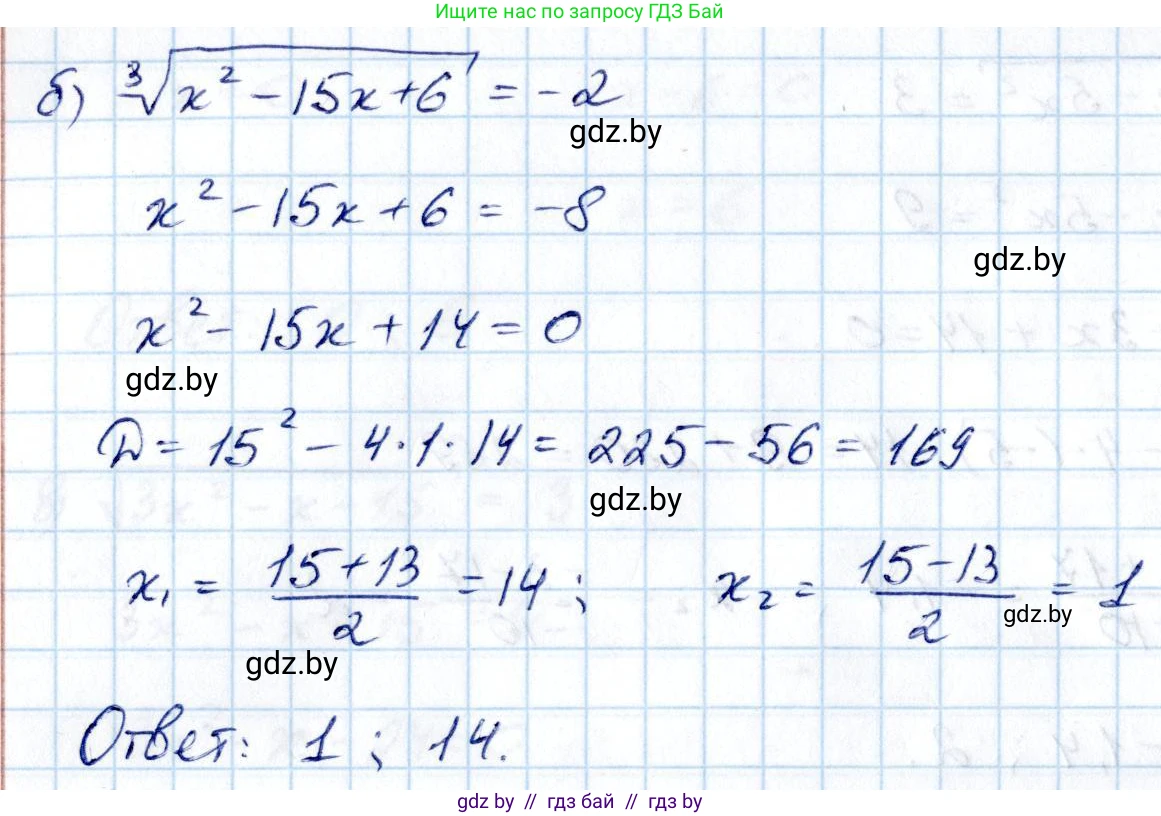 Ищите нас по запросу ГДЗ Бай
б) ³√(x² - 15x + 6) = -2
gdz.by
x² - 15x + 6 = -8
gdz.by
x² - 15x + 14 = 0
gdz.by
D = 15² - 4·1·14 = 225 - 56 = 169
gdz.by
x₁ = (15 + 13)/2 = 14 ; x₂ = (15 - 13)/2 = 1
gdz.by
gdz.by
Ответ: 1 ; 14.
gdz by // гдз бай // гдз by